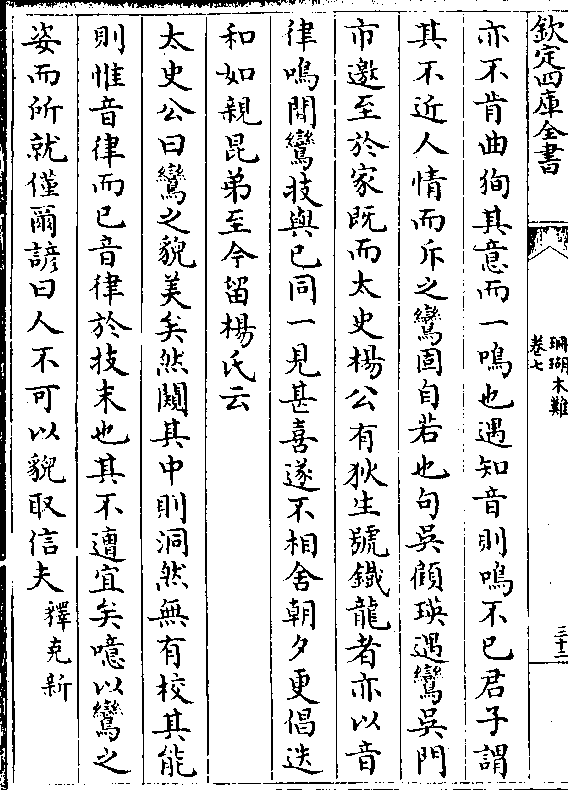 欽定四庫全書
珊瑚木難
卷七
三十三
亦不肯曲狥其意而一鳴也遇知音則鳴不已君子謂
其不近人情而斥之鸞固自若也句吳顧瑛遇鸞吳門
市邀至於家既而太史楊公有狄生號鐡龍者亦以音
律鳴聞鸞技與已同一見甚喜遂不相舍朝夕更倡迭
和如親昆弟至今留楊氏云
太史公曰鸞之貌美矣然闚其中則洞然無有校其能
則惟音律而已音律於技末也其不遭宜矣噫以鸞之
姿而所就僅爾諺曰人不可以貌取信夫
釋克新